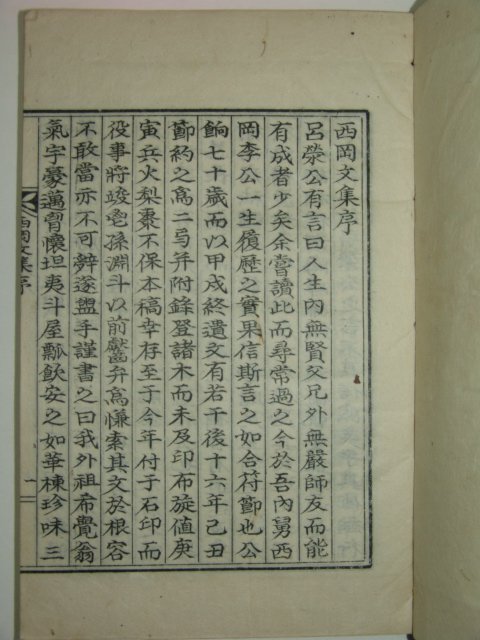 西岡文集序
呂滎公有言曰人生內無賢父兄外無嚴師友而能
有成者少矣余嘗讀此而尋常過之今於吾內舅西
岡李公一生履歷之實果信斯言之如合符節也公
餉七十歲而以甲戌終遺文有若干後十六年己丑
節約之爲二弓并附錄登諸木而未及印布旋值庚
寅兵火梨棗不保本稿幸存至于今年付于石印而
役事將竣皃孫淵斗以前齾弁爲慊索其文於根容
不敢當亦不可辭遂盥手謹書之曰我外祖希覺翁
氣宇豪邁胷懷坦夷斗屋瓢飮安之如華棟珍味三
西岡文集序
一